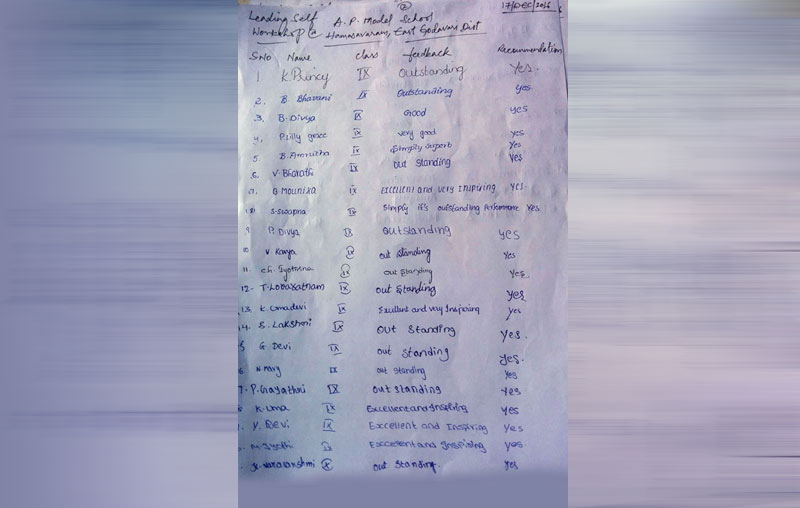 ② 17/DEC/2016
Leading Self A.P. Model School
Workshop @ Hamasavaram, East Godavari Dist
S.No Name class feedback Recommendation
1 K. Princy IX Outstanding Yes.
2. B. Bhavani IX Outstanding yes
3. B. Divya IX Good yes
4. P.lilly grace IX very good yes
5. B. Amrutha IX Simply superb Yes
6. V. Bharathi IX out standing Yes
7. B Mounika IX Excellent and very Inspiring yes
(8) S. swapna IX Simply it's outstanding Performance Yes.
9 P. Divya IX outstanding yes
10 V. Kavya IX out standing Yes
11. ch. Jyothsna IX out standing Yes
12. T. Lovaratnam IX out standing yes
13. K. Umadevi IX Excellent and very Inspiring yes
14. S. Lakshmi IX out standing yes.
5 G. Devi IX out standing yes.
6. N. Mary IX out standing Yes
7. P. Gayathri IX out standing yes
K. Uma IX Excellent and Inspiring yes
V. Devi IX Excellent and Inspiring yes
M. Jyothi IX Excellent and Inspiring yes
K. Varalakshmi X out standing. yes